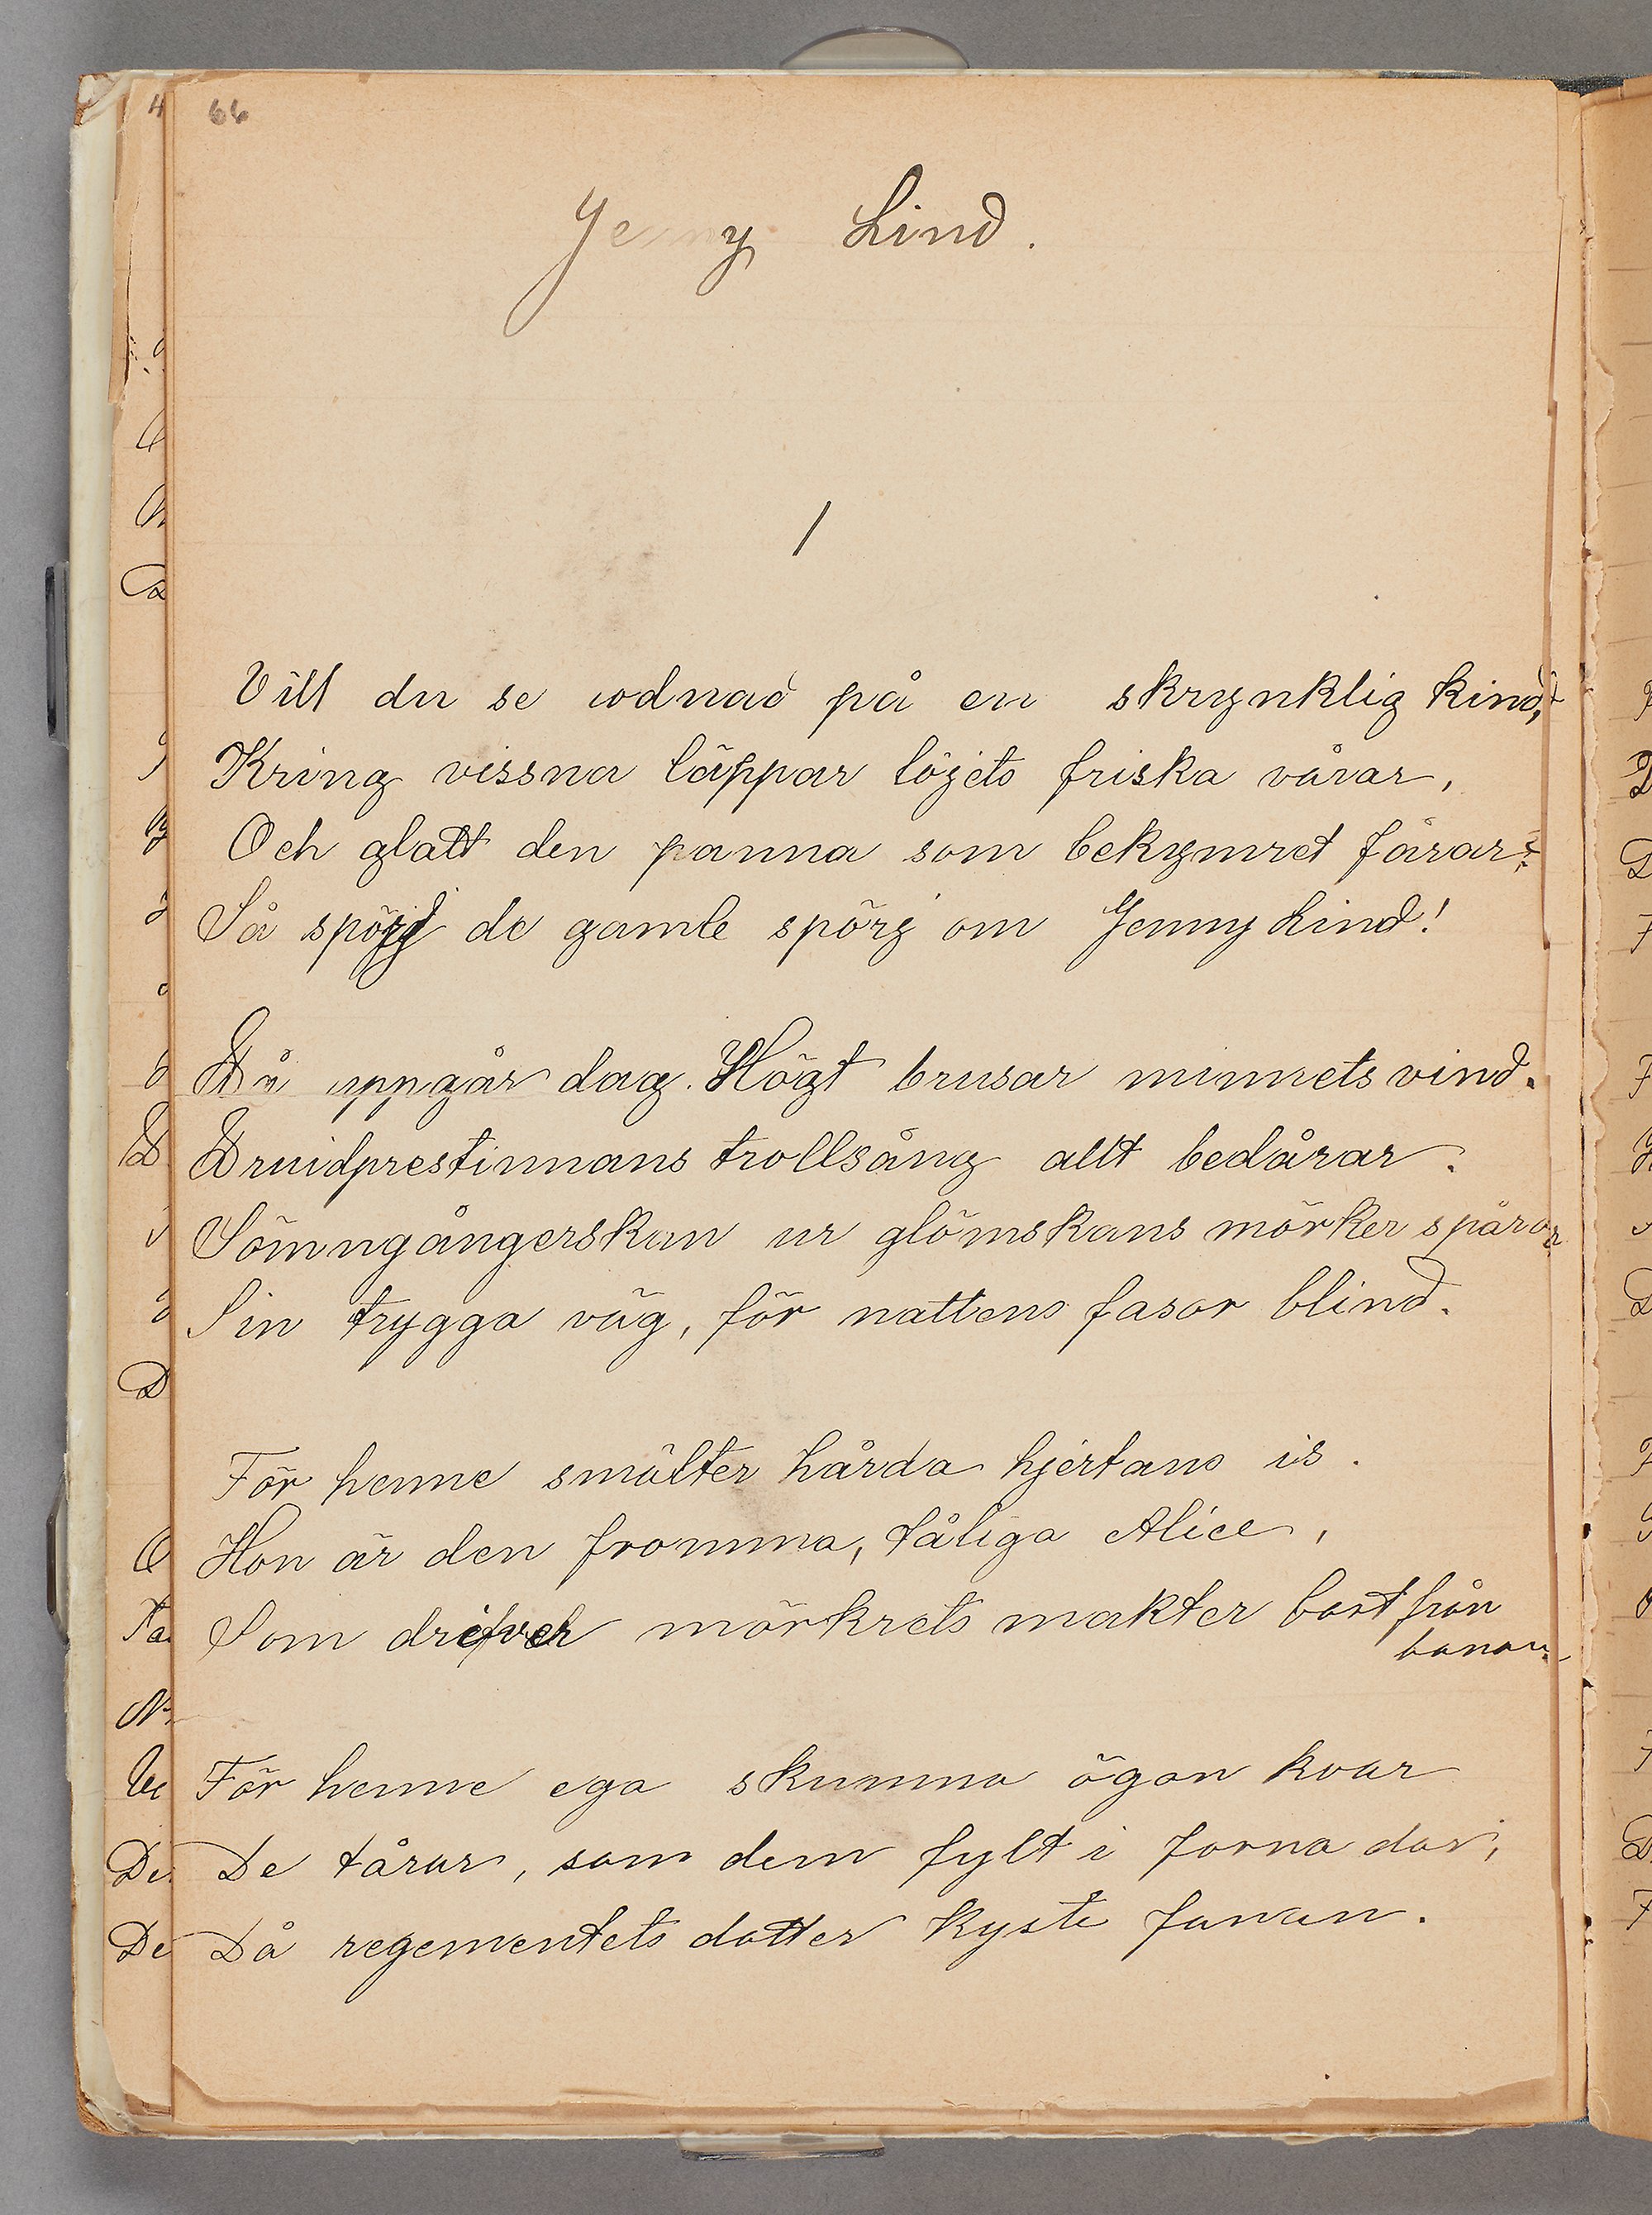 66
Jenny Lind.
1
Vill du se rodnad på en skrynklig kind,
Kring vissna läppar löjets friska vårar,
Och glatt den panna som bekymret fårar?
Så spörj de gamle spörj om Jenny Lind!
Då uppgår dag. Högt brusar minnets vind.
Druidprestinnans trollsång allt bedårar.
Sömngångerskan ur glömskans mörker spårar
Sin trygga väg, för nattens fasor blind.
För henne smälter hårda hjertans is.
Hon är den fromma, tåliga Alice,
Som drifver mörkrets makter bort från
banan.
För henne ega skumma ögon kvar
De tårar, som dem fylt i forna dar,
Då regementets dotter kyste fanan.